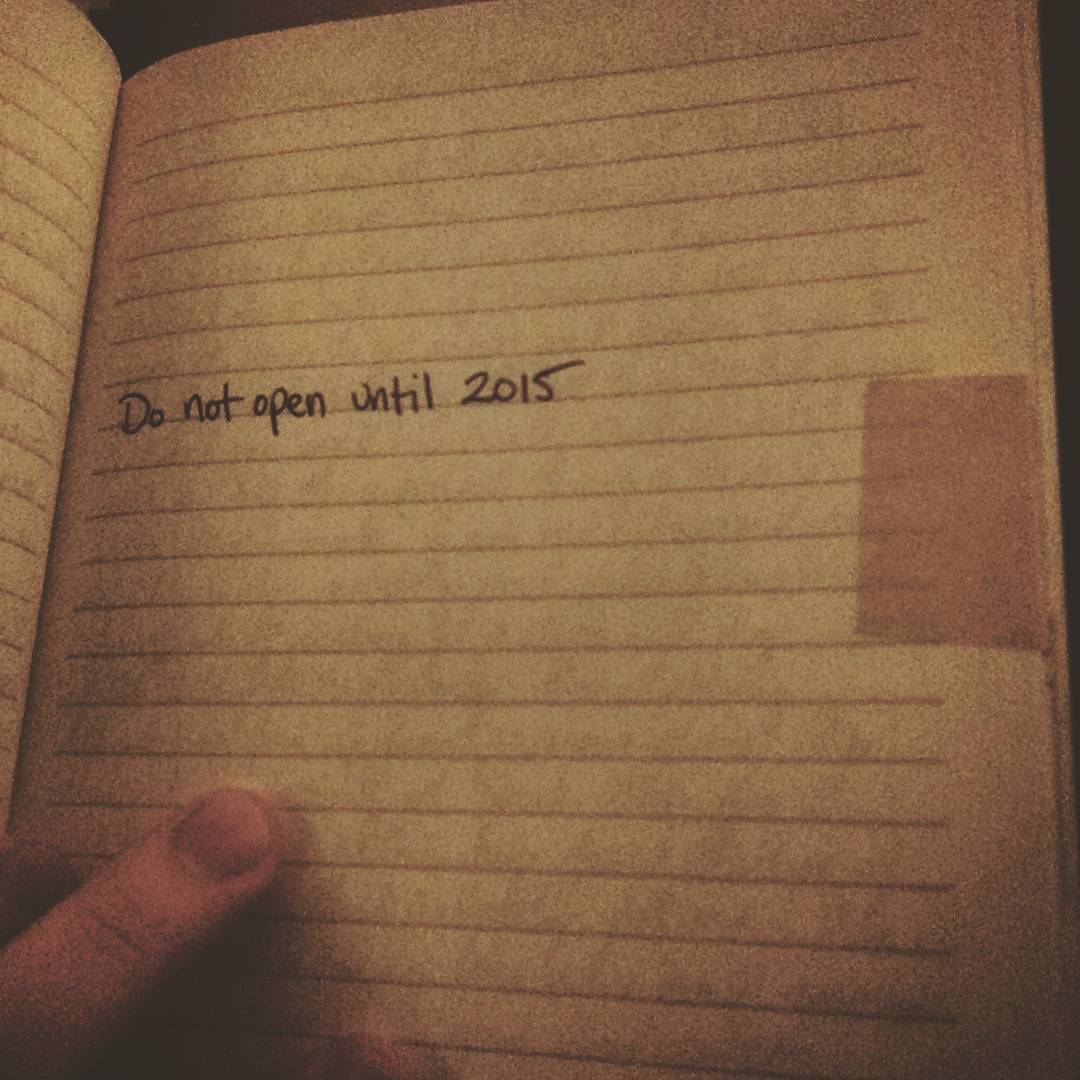 Do not open until 2015